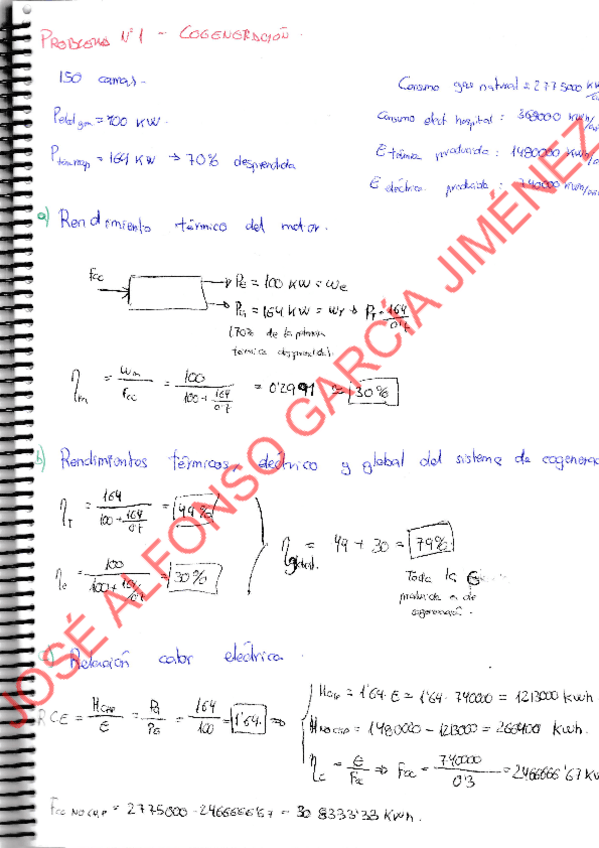 PROBLEMA Nº1 - COGENERACIÓN.
150 camas.-
Consumo gas natural = 2775000 KW
Pelét gen = 100 KW.
Consumo elect hospital: 369000 KWh/
Ptérm rep = 164 KW → 70% desprendida
E térmica producida: 1480000 KWh/
E eléctrica producida: 740000 KWh/
a) Rendimiento térmico del motor.
Fcc
→ PE = 100 KW = We
→ PQ = 164 KW = → PT = 164/0'7
(70% de la potencia
térmica desprendida).
ηm = Wm/Fcc = 100/(100 + 164/0'7) = 0'2991 ≈ 30%
b) Rendimientos térmicos, eléctrico y global del sistema de cogenerac
ηT = 164/(100 + 164/0'7) = 49%
ηglobal = 49 + 30 = 79%
ηe = 100/(100 + 164/0'7) = 30%
Toda la E
producida es de
cogeneración.
c) Relación calor eléctrica.
RCE = HCHP/E = PQ/PE = 164/100 = 1'64 ⇒
HCHP = 1'64 · E = 1'64 · 740000 = 1213000 Kwh
HNO CHP = 1480000 - 1213000 = 266400 Kwh.
ηE = E/Fcc ⇒ Fcc = 740000/0'3 = 2466666'67 KW
Fcc NO CHP = 2775000 - 2466666'67 = 308333'33 Kwh.
JOSÉ ALFONSO GARCÍA JIMÉNEZ